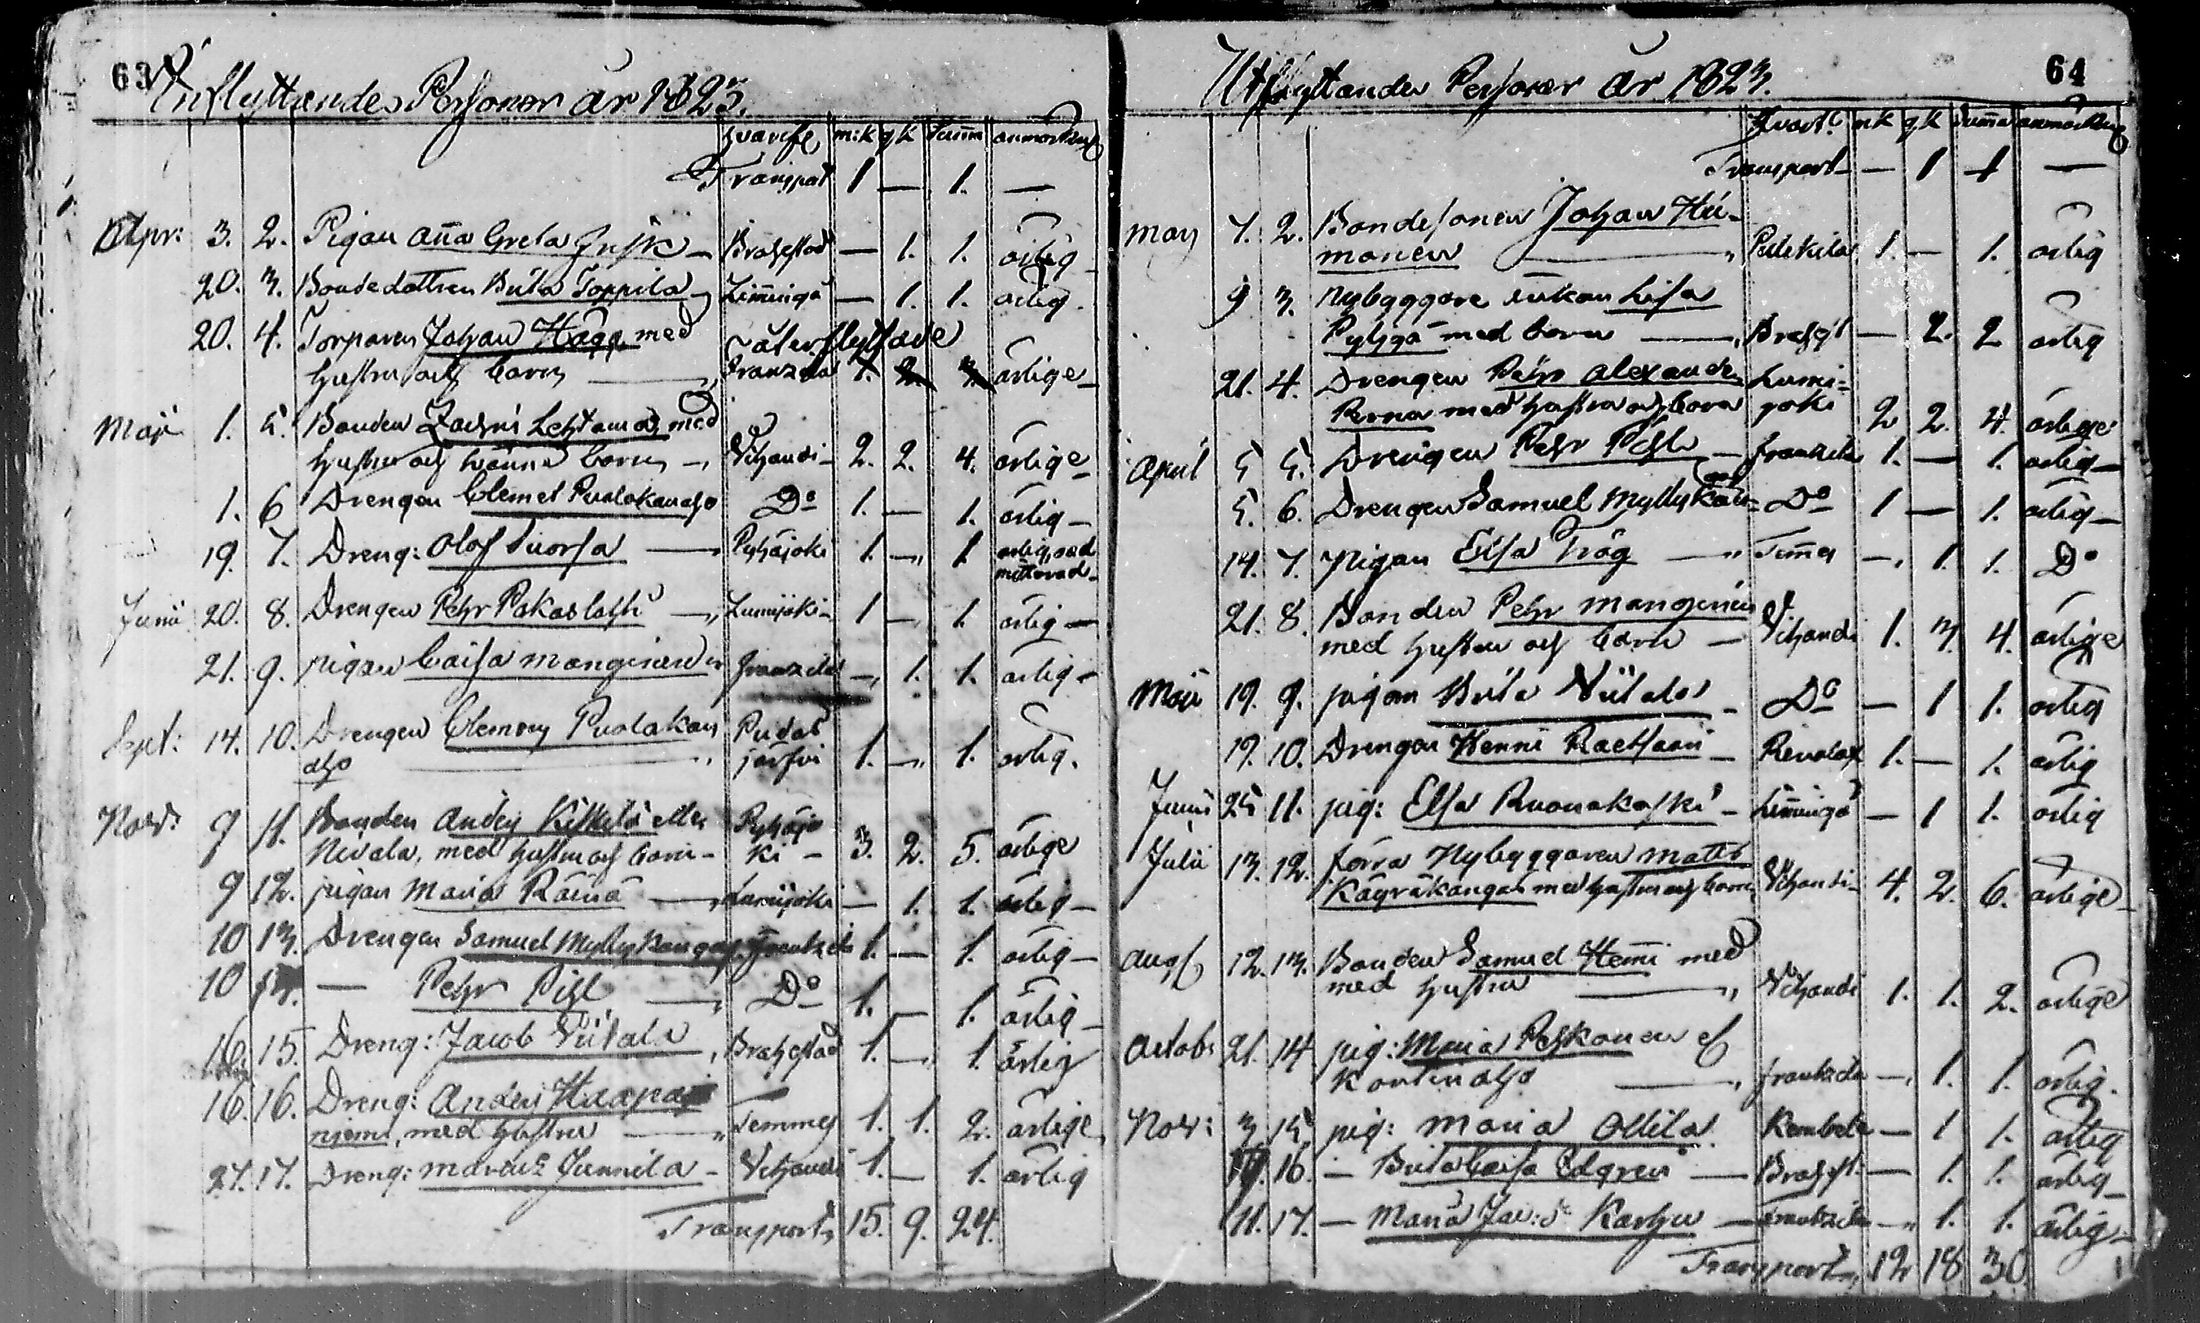 63
Inflyttandes Personer år 1823.
hvarifr m:k q k Summ anmärkng
Transport 1 — 1. —
Apr: 3. 2. Pigan Aña Greta Frisk — Brahestad — 1. 1. ärlig —
20. 3. Bondedottren Brita Toppila — Limingo — 1. 1. ärlig.
20. 4. Torparen Johan Hägg med återflyttade
hustru och barn — Franzila 1. 2. 3. ärlige —
Maji 1. 5. Bonden Zachris Lehtomäki med
hustru och barn — Vihandi — 2. 2. 4. ärlige
1. 6 Drengen Clemet Puolakanaho Do 1. — 1. ärlig —
19. 7. Dreng: Olof Tuorsa — Pyhäjoki 1. — 1
Junii 20. 8. Drengen Pehr Pakaslahti — Lumijoki — 1 — 1. ärlig —
21. 9. pigan Caisa Manginen — Franzila — 1. 1. ärlig —
Sept: 14. 10. Drengen Clemeny Puolakan Pudas
aho — järfvi 1. — 1. ärlig.
Nov: 9 11. Bonden Anders Kittilä eller Pyhäjo
Nivala, med hustru och barn — ki — 3. 2. 5. ärlige
9 12. pigan Maria Räinä — Lumijoki — 1. 1. ärlig —
10 13. Drengen Samuel Myllykangas Frantzila 1. — 1. ärlig —
10 14. — Pehr Pihl — Do 1. — 1. ärlig —
15. Dreng: Jacob Viitala, Brahestad 1. — 1. ärlig
16. 16. Dreng: Anders Haapa
niemi, med hustru — Temmes 1. 1. 2. ärlige
27. 17. Dreng: Marcus Junnila — Vihandi 1. — 1. ärlig
Transport, 15. 9. 24.
64
Utflyttandes Personer år 1823.
hvart m k q k Summa anmärkng
Transport — — 1 1 —
May 7. 2. Bondesonen Johan Hei-
monen — Pulkila 1. — 1. ärlig
9 3. Nybyggare enkan Lisa
Pyhyä med barn — Brahest — 2. 2 ärlig
21. 4. Drengen Pehr Alexander Lumi-
Perna med hustru och barn joki 2 2. 4. ärlige
April 5 5. Drengen Pehr Pihl — Frantzila 1. — 1. ärlig —
5. 6. Drengen Samuel Myllykangas — Do 1 — 1. ärlig —
14. 7. Pigan Elsa Trög — Temes — 1. 1. Do
21. 8. Bonden Pehr Manginen
med hustru och barn — Vihandi 1. 3. 4. ärlige
Maji 19. 9. pigan Brita Viitala — Do — 1 1. ärlig
19. 10. Drengen Henric Raetsaari — Revolax 1. — 1. ärlig
Junii 25 11. pig: Elsa Ruonakoski — Limingo — 1 1. ärlig
Julii 13. 12. förra Nybyggaren Matts
Käyräkangas med hustru och barn, Vihandi — 4. 2. 6. ärlige —
Aug 12. 13. Bonden Samuel Hemi med
med hustru — Vihandi 1. 1. 2. ärlige
Octob: 21. 14 pig: Maria Peskonen el
Kontinaho — Frantzila — 1. 1. ärlig.
Nov: 3. 15. pig: Maria Ollila Kembele — 1 1. ärlig
16. — Brita Caisa Edgren — Brahest. — 1. 1. ärlig —
11. 17. — Maria Jac: dr Karhu — Frantzila — 1. 1. ärlig —
Transport, 12 18 30